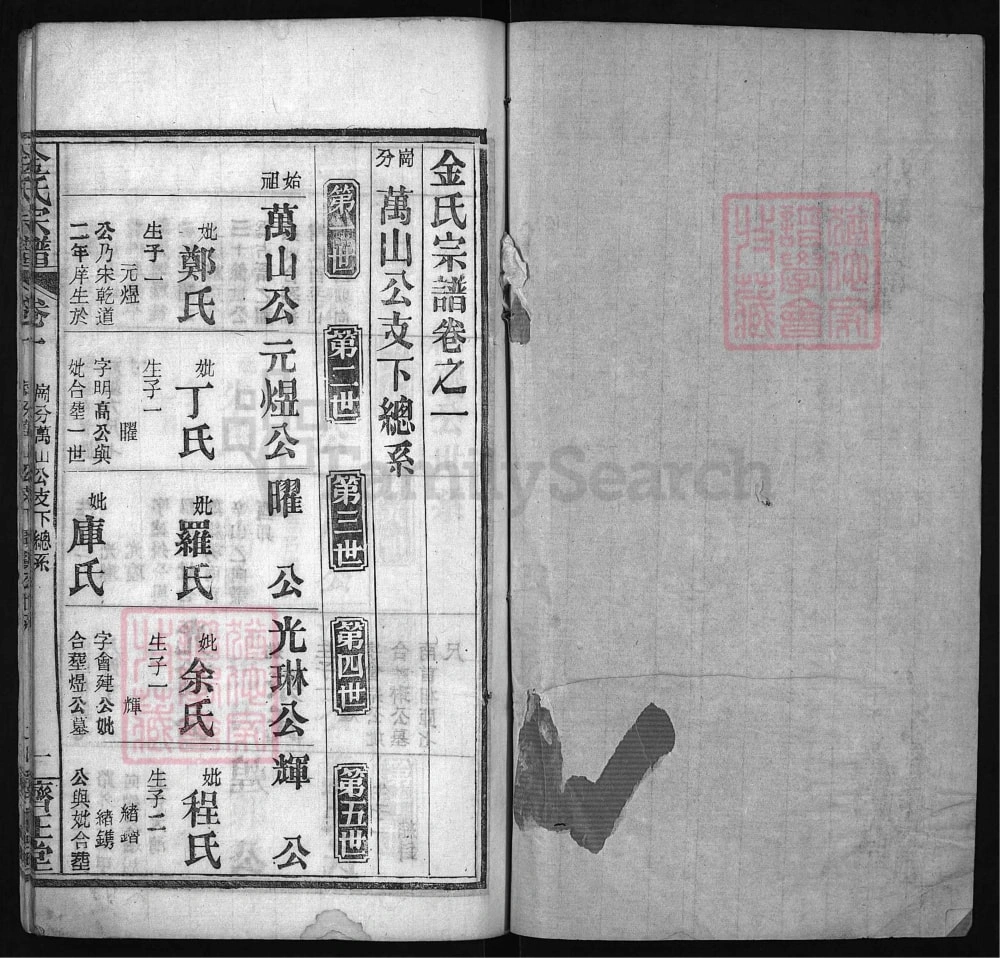 金氏宗譜卷之一
崗分
萬山公支下總系
第一世
第二世
第三世
第四世
第五世
始祖
萬山公
妣鄭氏
生子一
元煜
公乃宋乾道
二年庠生於
元煜公
妣丁氏
生子一
曜
字明高公與
妣合塟一世
曜公
妣羅氏
妣庫氏
光琳公
妣余氏
生子一
輝
字會建公妣
合塟煜公墓
輝公
妣程氏
生子二
緒鐫
公與妣合塟
金氏宗譜
卷一
崗分萬山公支下總系
一
FamilySearch